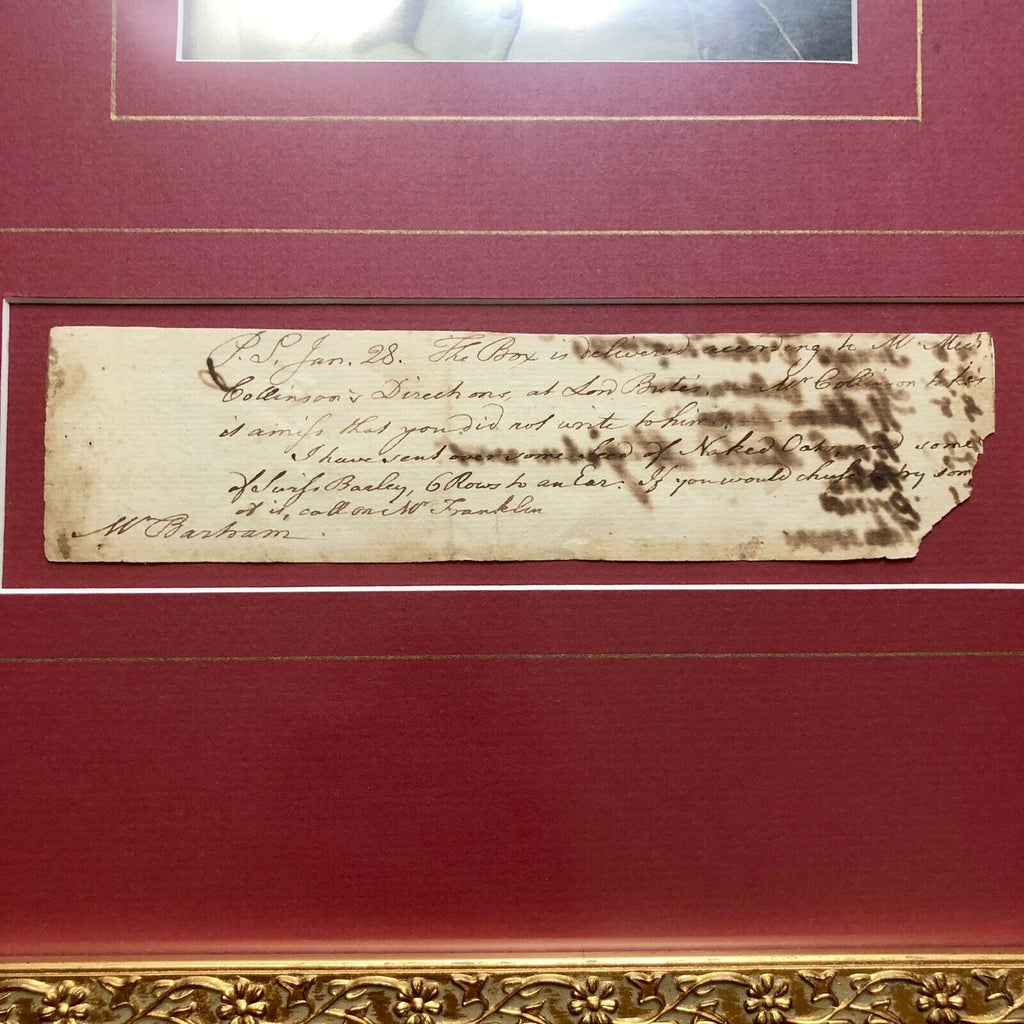 P.S. Jan. 28. The Box is delivered according to Mr Mich
Collinson's Directions, at Lord Bute's. Mr Collinson takes
it amiss that you did not write to him.
I have sent over some Seed of Naked Oats, and some
of Swiss Barley, 6 Rows to an Ear. If you would chuse to try some
of it, call on Mrs Franklin
Mr Bartram.